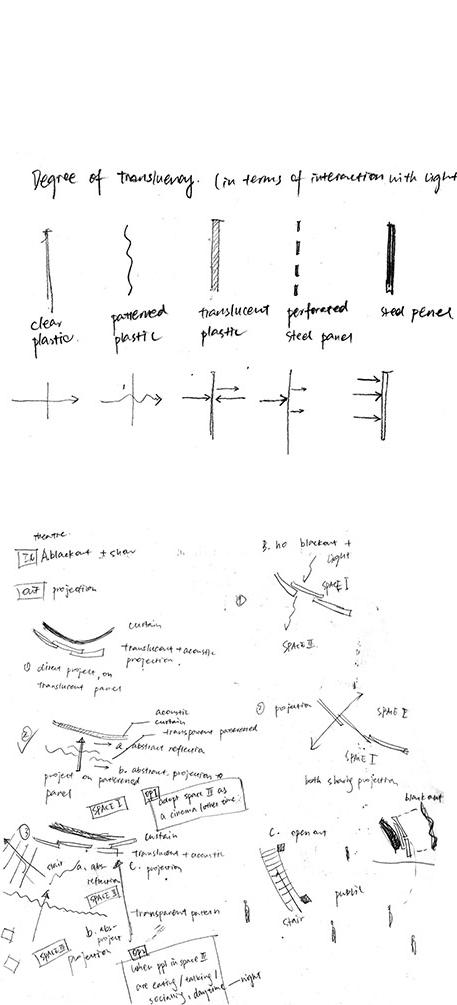 Degree of transluency. (in terms of interaction with light
clear
plastic.
patterned
plastic
translucent
plastic
perforated
steel panel
steel penel
theatre.
IN A blackout + show
OUT projection
curtain
translucent + acoustic
projection.
① direct project, on
translucent panel
②
acoustic
curtain
transparent patterened
a. abstract reflection
b. abstract projection
project on patterened
panel
SPACE I
OP1 adopt space II as
a cinema latter time.
③
curtain
translucent + acoustic
c. projection
stair
a. abs-
reflection
SPACE II
transparent pattern
b. abs-
project
SPACE III
projection
OP2
when ppl in space II
are eating/talking/
socialing, daytime — night
B. no blackout +
light
①
SPACE I
SPACE II
② projection
SPACE II
SPACE I
both sharing projection
blackout
C. open air
stair
public